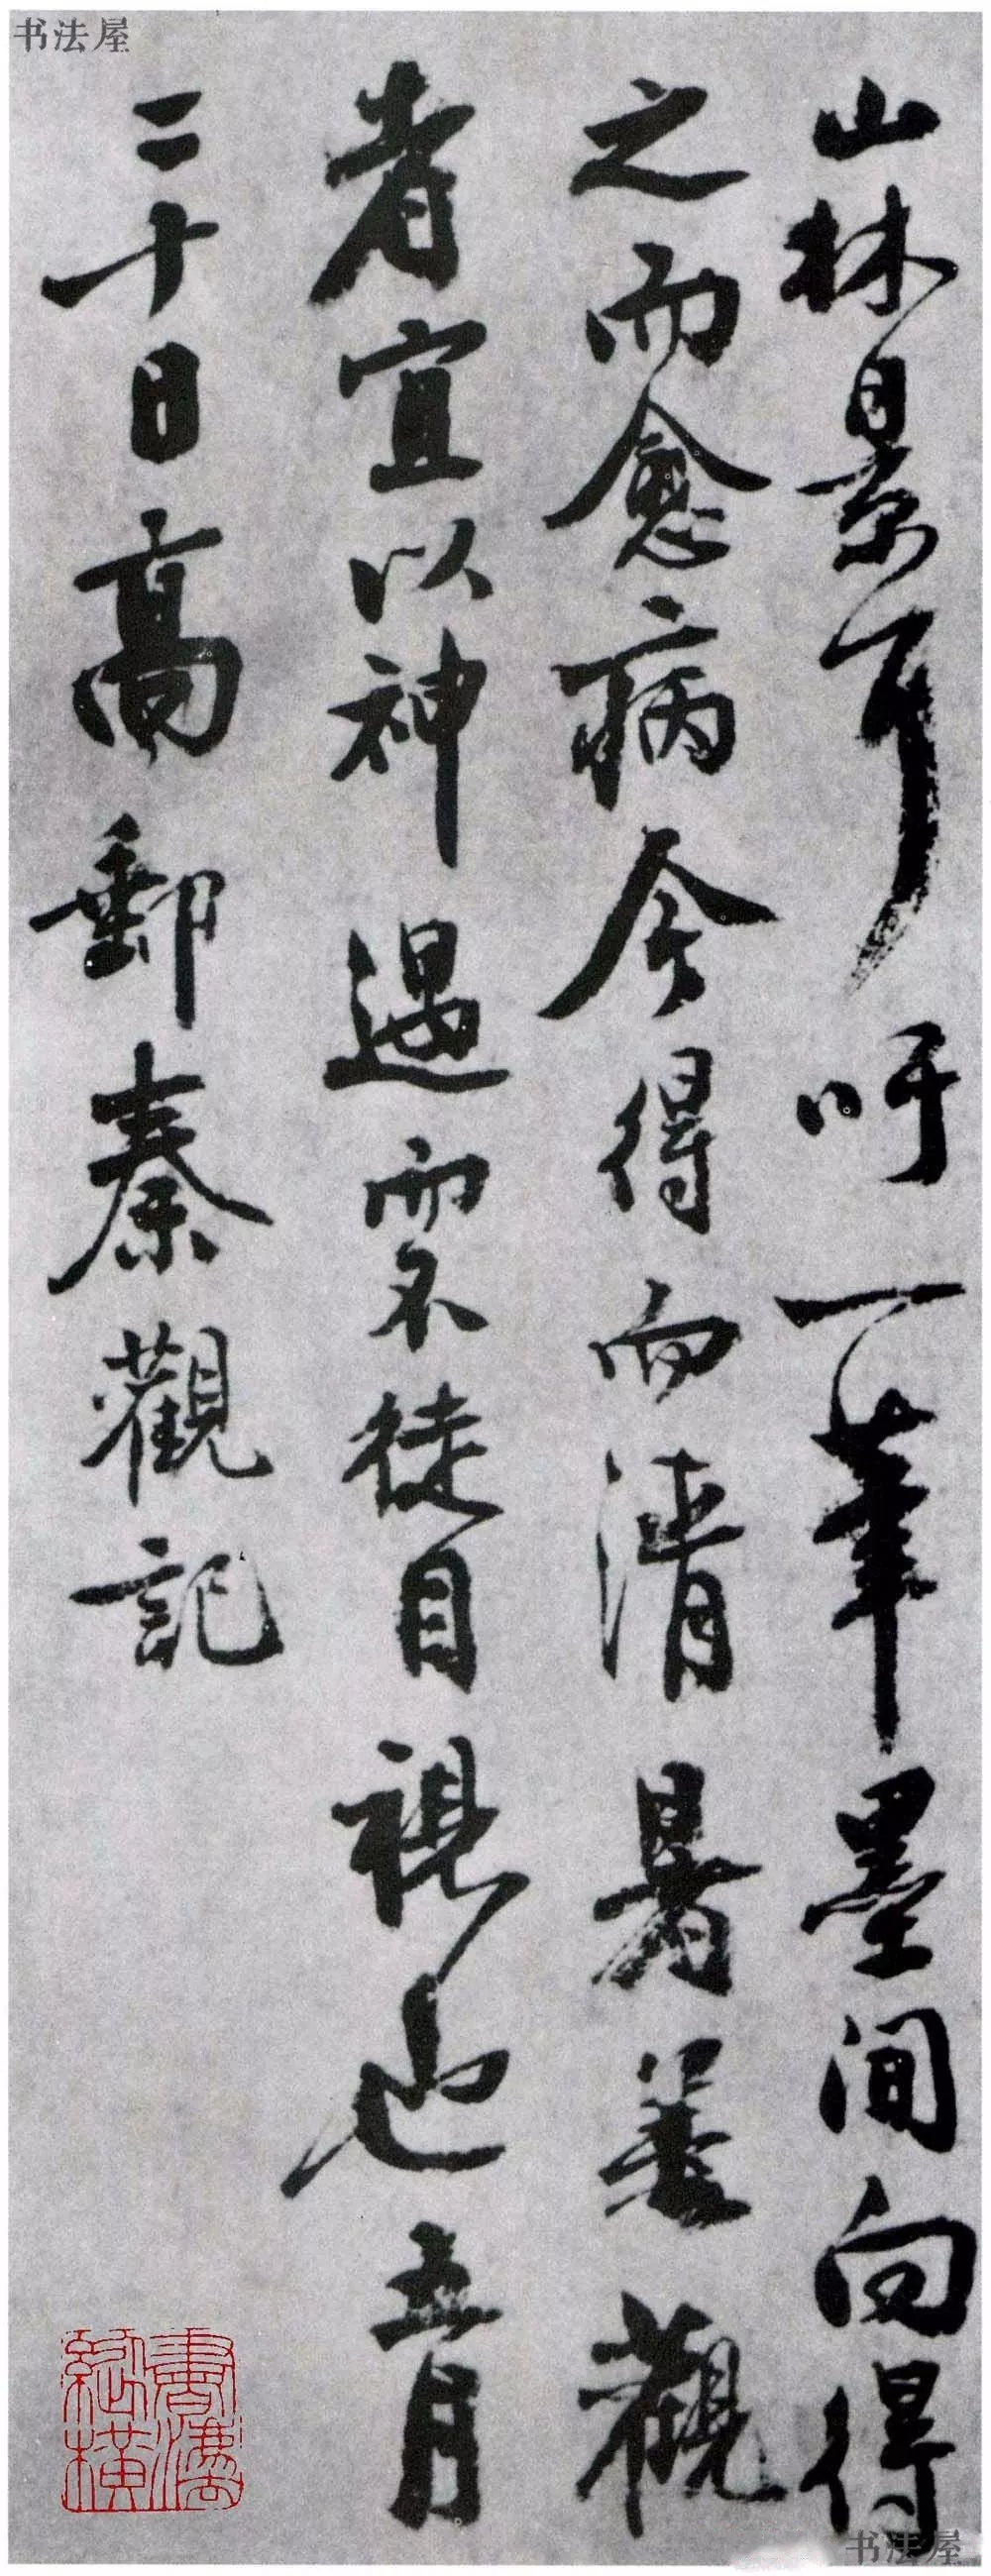 书法屋
山林景可吁一筆墨間向得
之而愈病今得而清暑善觀
者宜以神遇而不徒目視也五月
二十日高郵秦觀記
書法
縱橫
书法屋